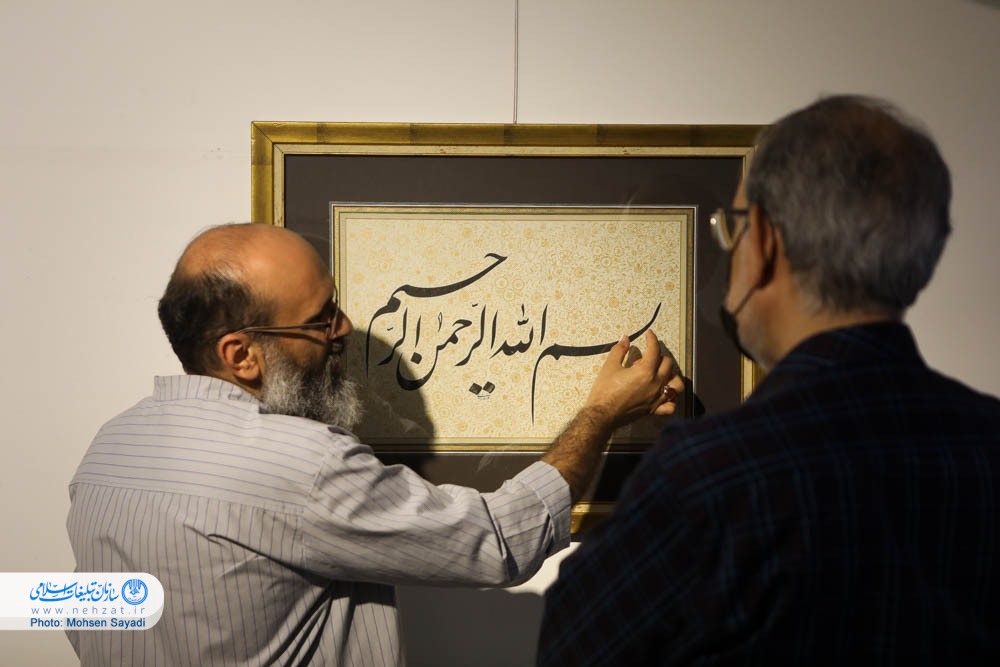 بسم الله الرّحمٰن الرّحیم
سازمان تبلیغات اسلامی
www.nehzat.ir
Photo: Mohsen Sayadi